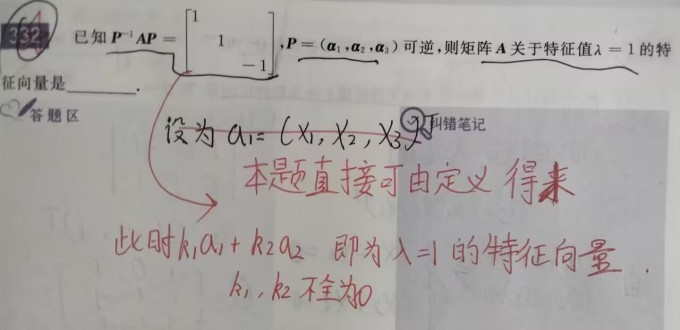 332 已知 P⁻¹AP = [1 1 -1], P = (α₁, α₂, α₃) 可逆, 则矩阵 A 关于特征值 λ = 1 的特
征向量是________.
答题区
纠错笔记
设为 a₁ = (x₁, x₂, x₃)ᵀ
本题直接可由定义得来
此时 k₁a₁ + k₂a₂ 即为 λ=1 的特征向量.
k₁, k₂ 不全为0